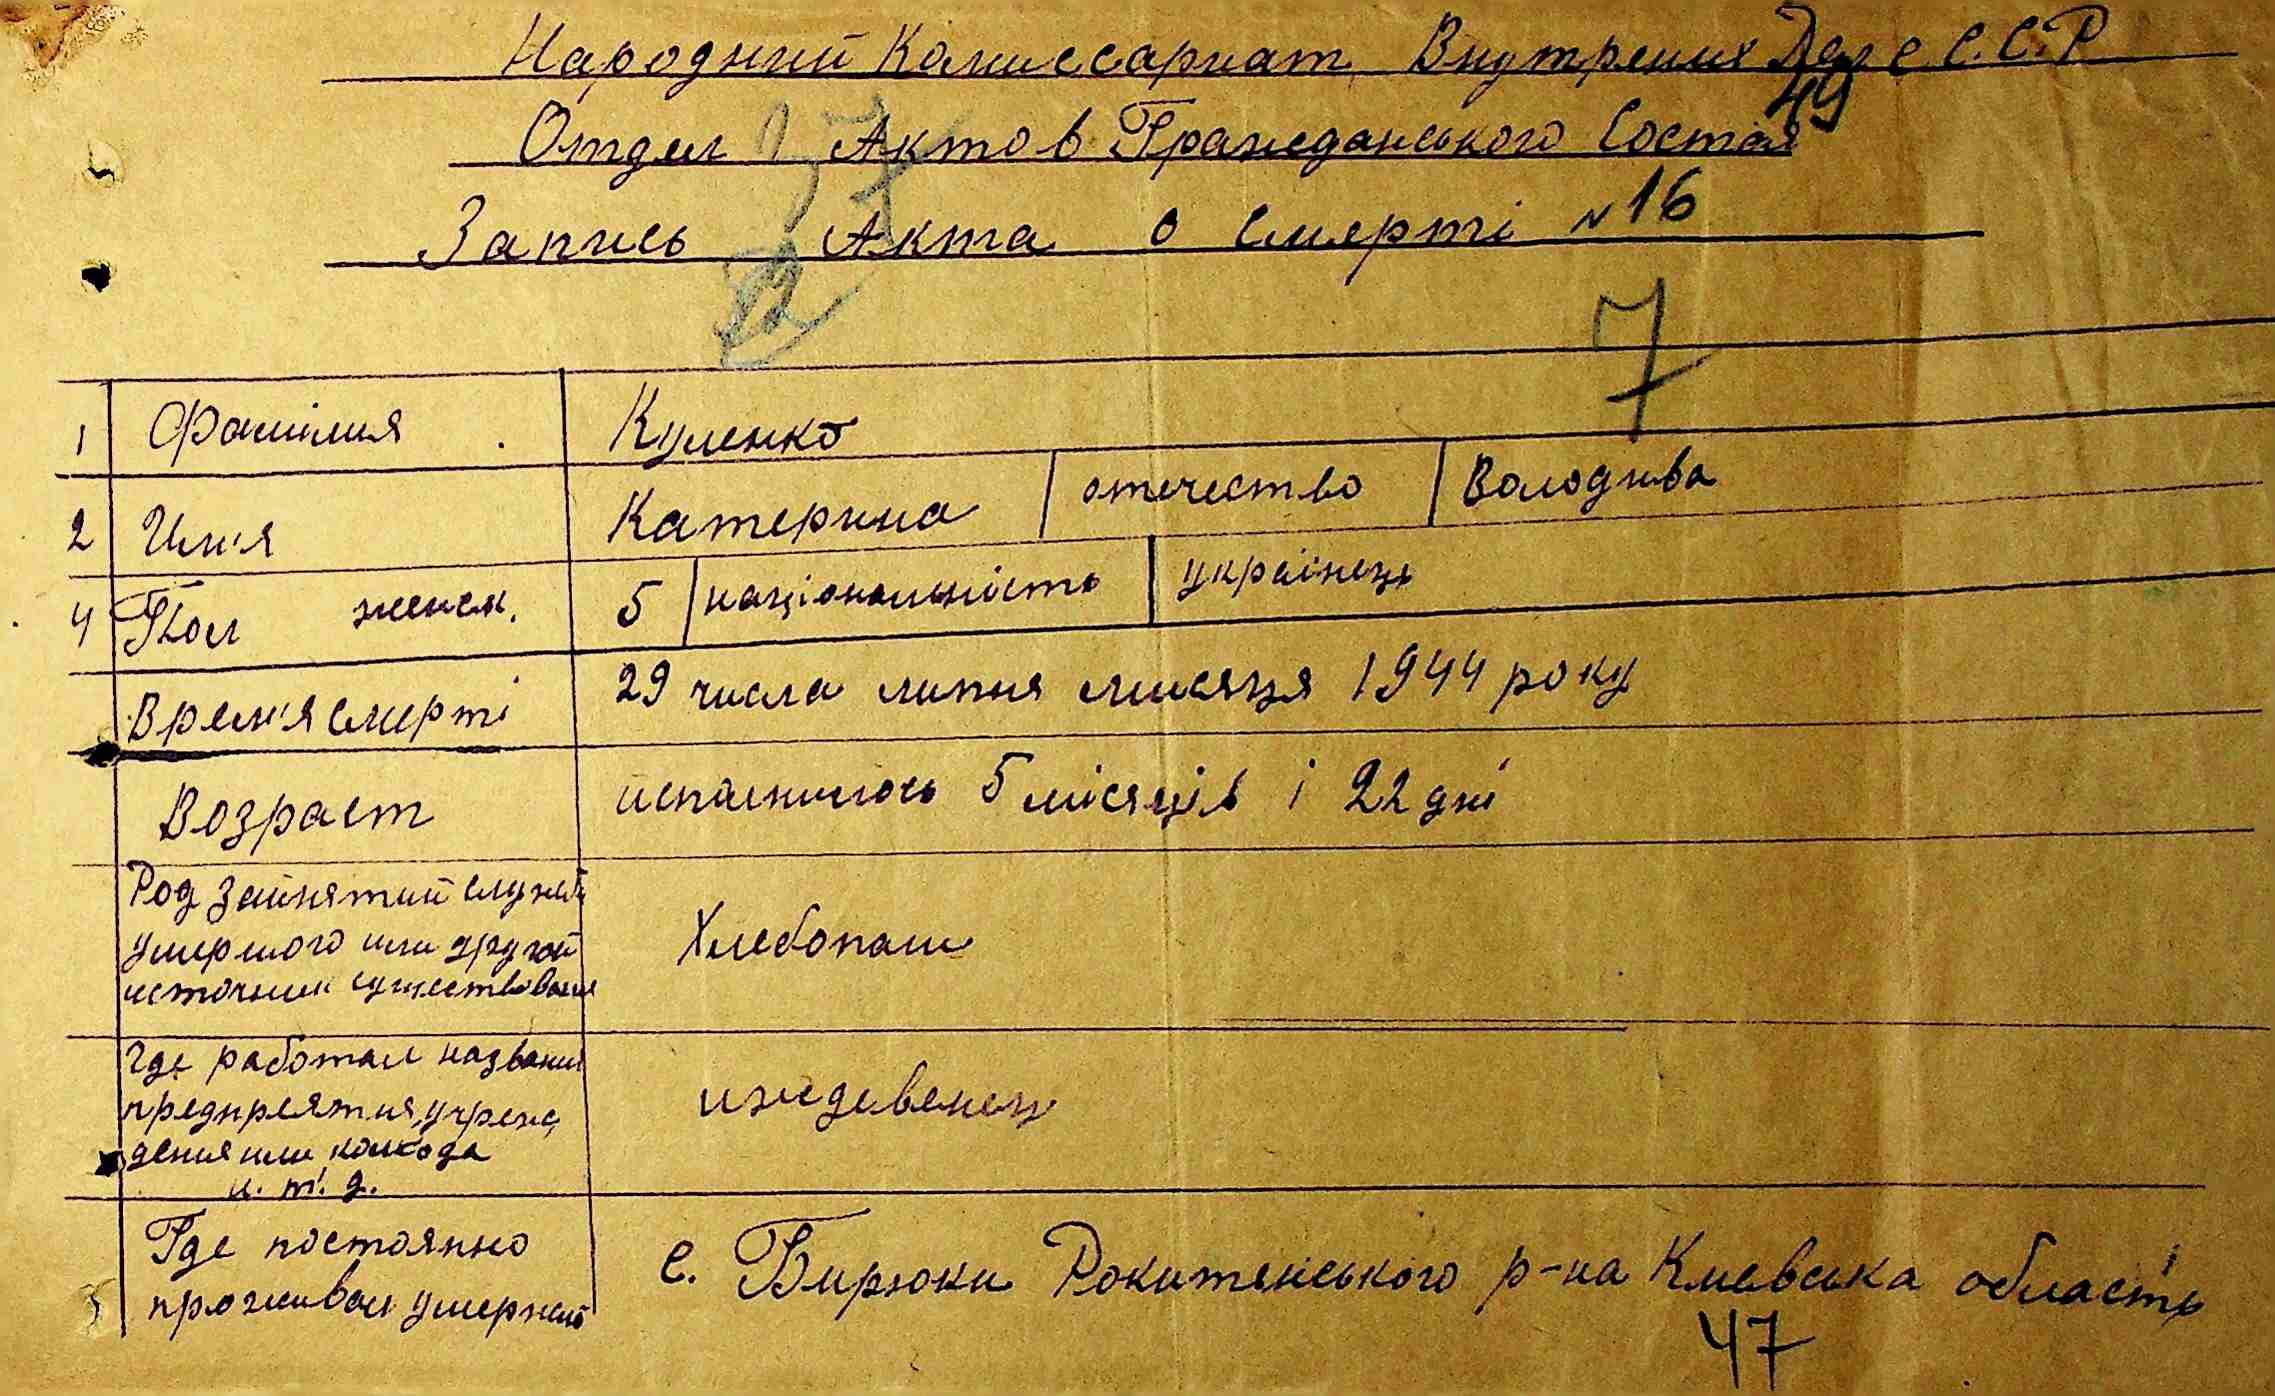 Народний Комиссариат Внутрених Дел С.С.С.Р
49
Отдел Актов Гражданського Состоя
Запись Акта о Смерті №16
7
1 Фамілия Куленко
2 Им'я Катерина отечество Володива
4 Пол женск. 5 національність українець
Врем'я смерті 29 числа липня мисяця 1944 року
Возраст исполнилось 5 місяців і 22 дні
Род зайнятий служб
умершого или другой Хлебопаш
источник существования
Где работал название
предприятия, учреж иждевенец
дения или колхода
и. т. д.
Где постоянно с. Бирюки Рокитенського р-на Киевська область
проживал умерший
47